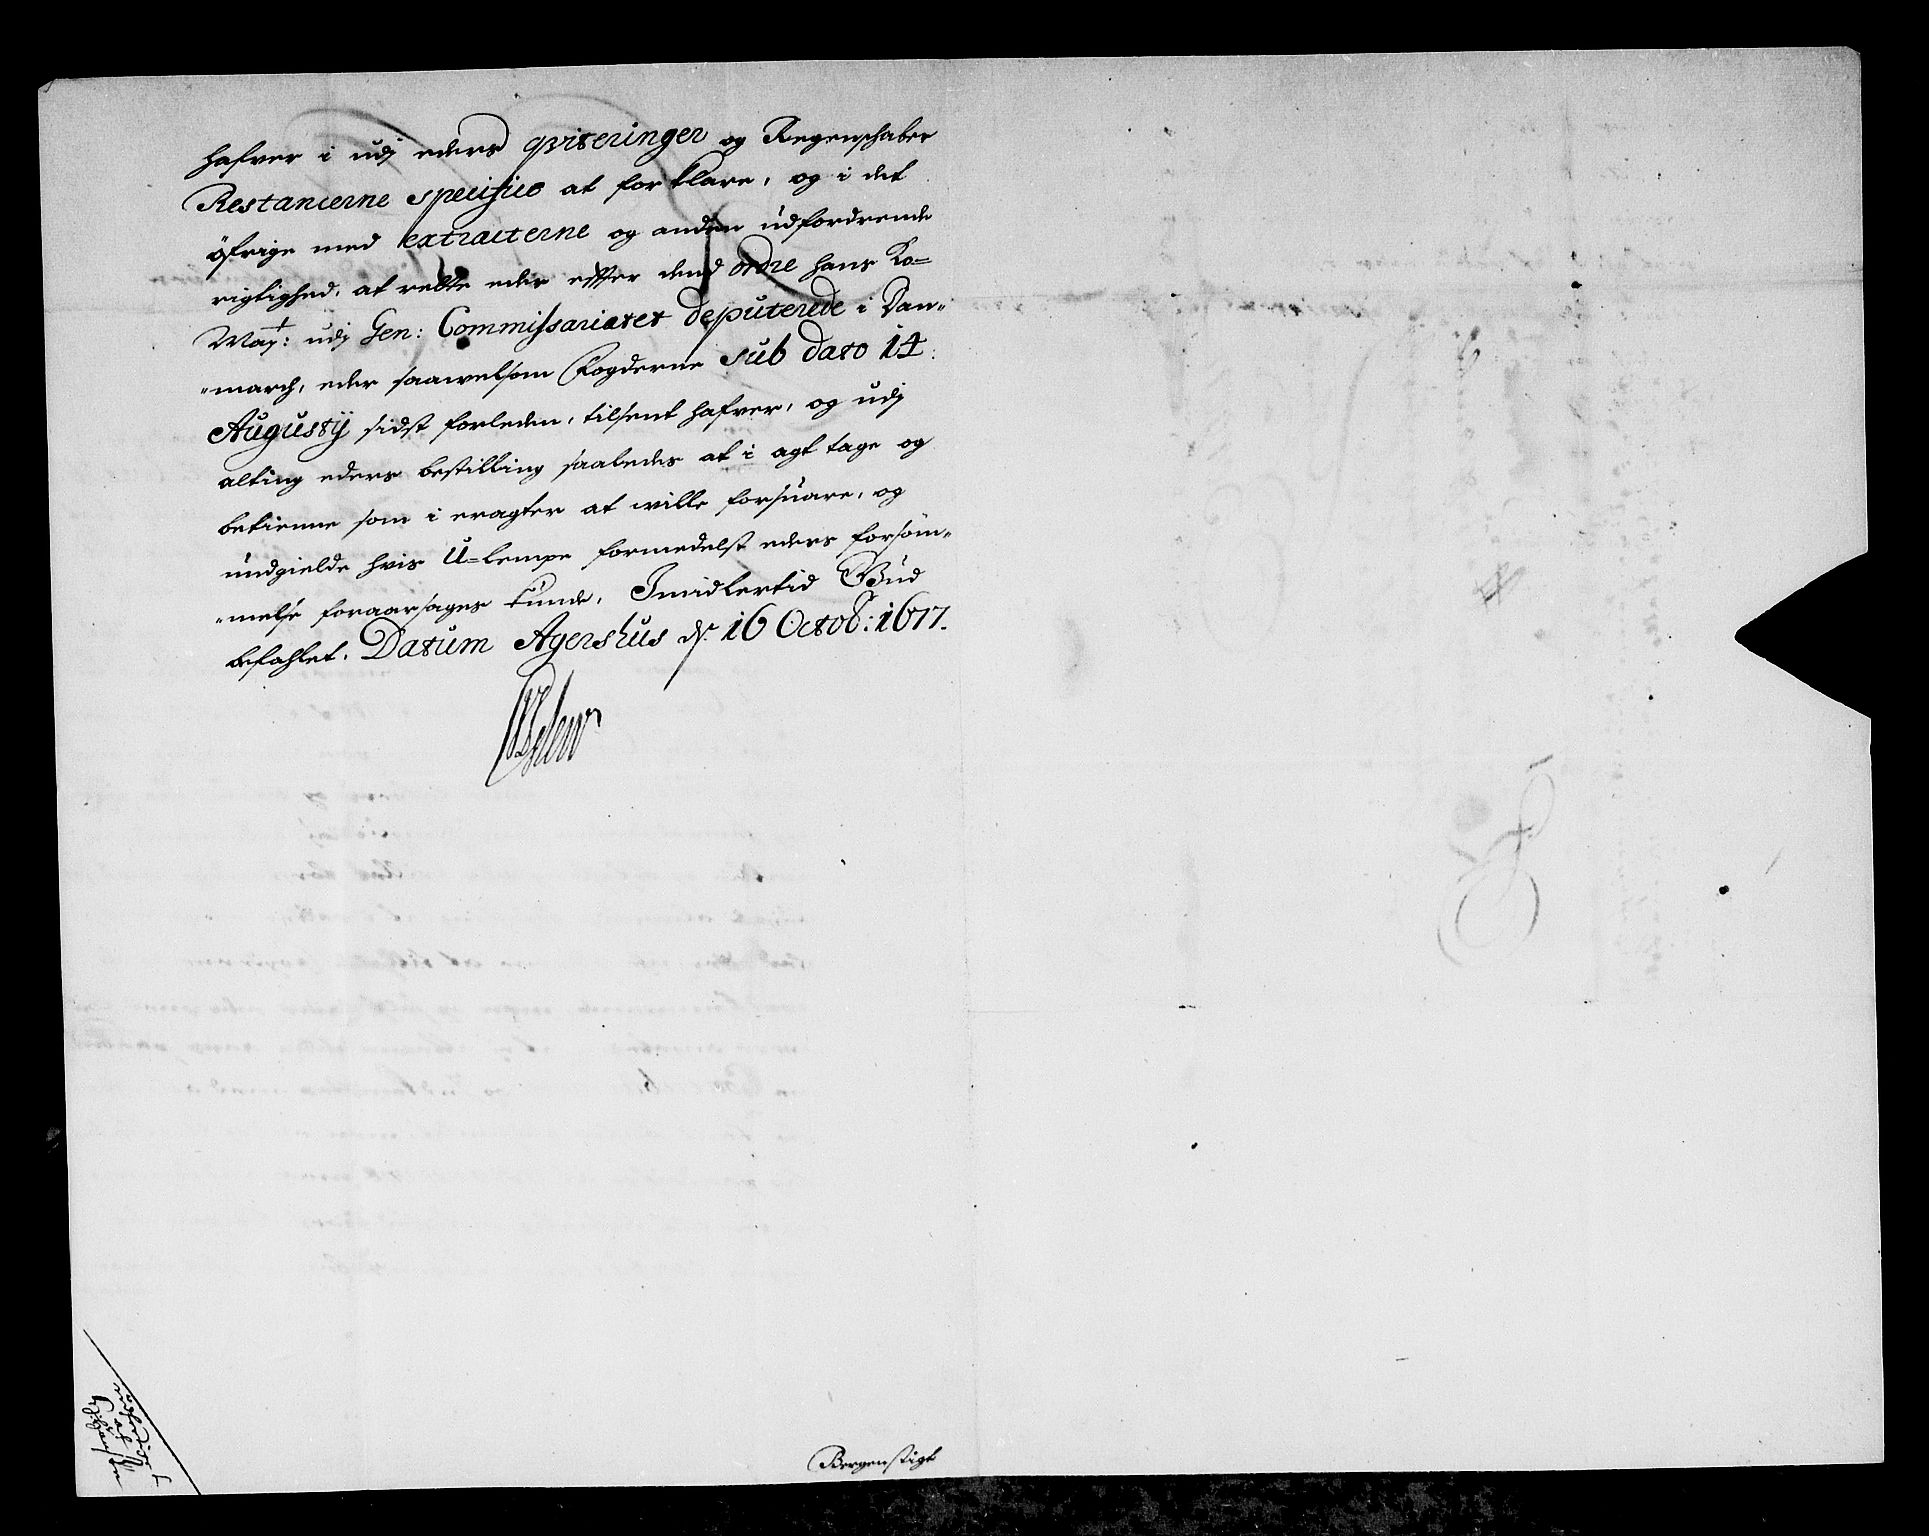 hafver i udj eders qviteringer og Regenschaber
Restancerne specifice at forklare, og i det
öfrige med extracterne og anden udfordrende
rigtighed, at rette eder effter dend ordre hans Ko=
May: udj Gen: Commissariatet deputerede i Dan-
-march, eder saawelsom Fogderne sub dato 14
Augustij sidst forleden, tilsent hafver, og udj
alting eders bestilling saaledes at i agt tage og
betienne som i eragter at wille forsuare, og
undgielde hvis U=lempe formedelst eders forsöm-
-melse foraarsages kunde, Imidlertid Gud
befahlet. Datum Agershus ds. 16 Octob: 1677.
Bergenstigt